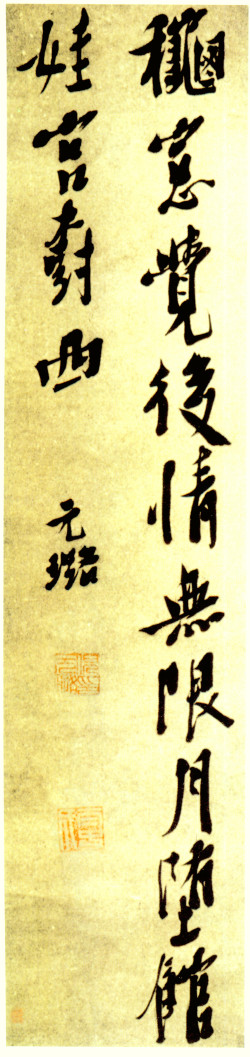 龝窓覺後情無限月墮館
娃宮樹西
元璐